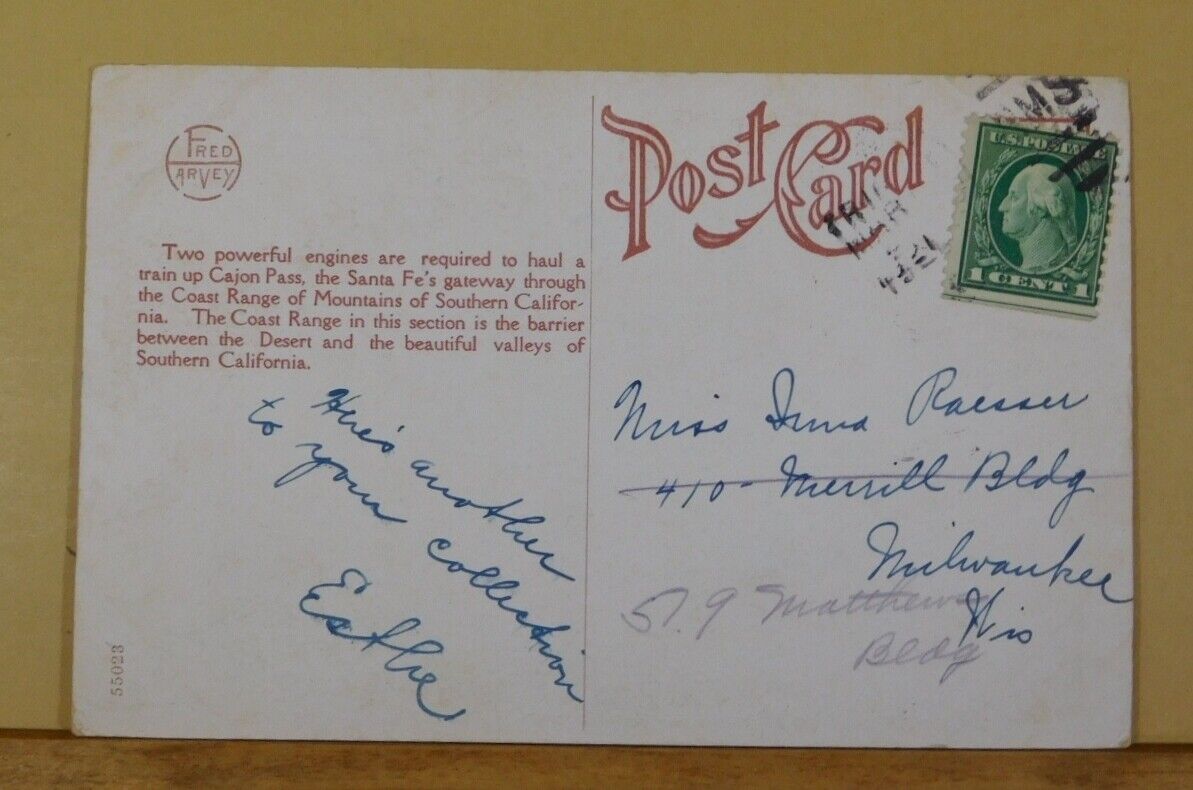 FRED
HARVEY
Two powerful engines are required to haul a
train up Cajon Pass, the Santa Fe's gateway through
the Coast Range of Mountains of Southern Califor-
nia. The Coast Range in this section is the barrier
between the Desert and the beautiful valleys of
Southern California.
Here's another
to your collection
Esther
55023
Post Card
MAR
U.S. POSTAGE
1 CENT 1
Miss Irma Raesser
410 - Merrill Bldg
Milwaukee
Wis
Matthews
Bldg